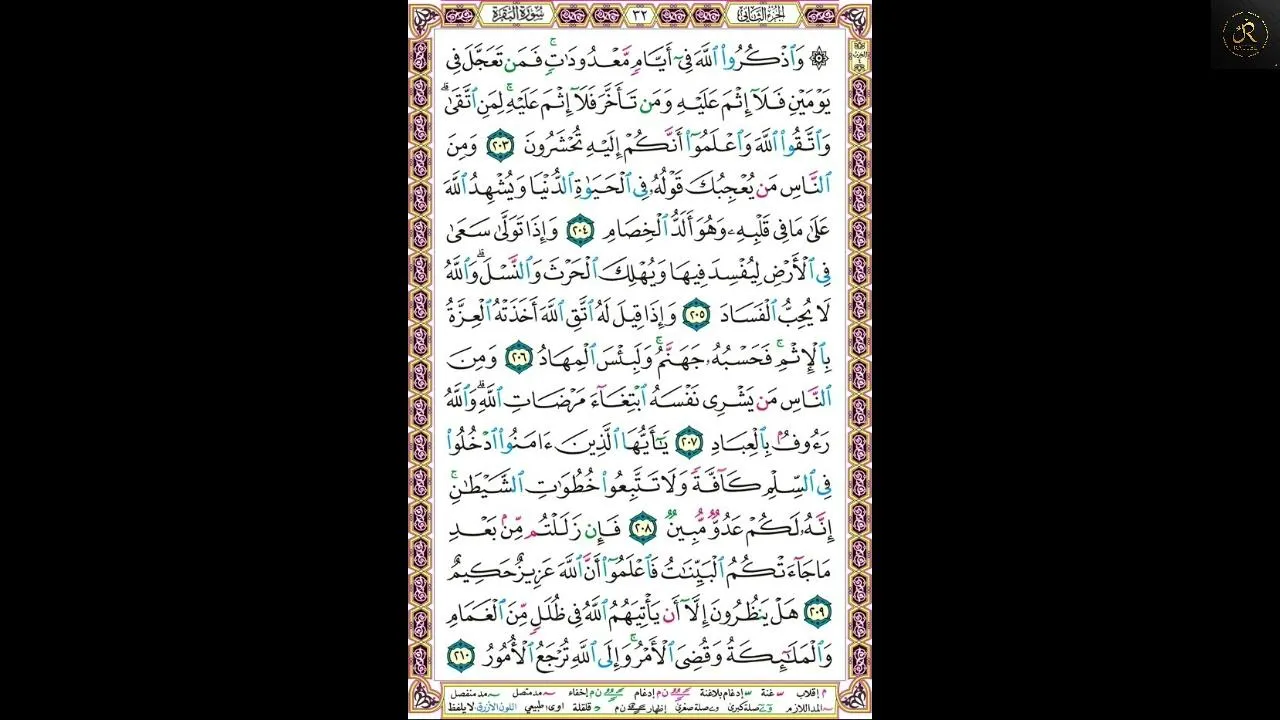 الجزء الثاني ٣٢ سورة البقرة
۞ وَٱذْكُرُوا۟ ٱللَّهَ فِىٓ أَيَّامٍ مَّعْدُودَٰتٍ ۚ فَمَن تَعَجَّلَ فِى
يَوْمَيْنِ فَلَآ إِثْمَ عَلَيْهِ وَمَن تَأَخَّرَ فَلَآ إِثْمَ عَلَيْهِ ۚ لِمَنِ ٱتَّقَىٰ ۗ
وَٱتَّقُوا۟ ٱللَّهَ وَٱعْلَمُوٓا۟ أَنَّكُمْ إِلَيْهِ تُحْشَرُونَ ٢٠٣ وَمِنَ
ٱلنَّاسِ مَن يُعْجِبُكَ قَوْلُهُۥ فِى ٱلْحَيَوٰةِ ٱلدُّنْيَا وَيُشْهِدُ ٱللَّهَ
عَلَىٰ مَا فِى قَلْبِهِۦ وَهُوَ أَلَدُّ ٱلْخِصَامِ ٢٠٤ وَإِذَا تَوَلَّىٰ سَعَىٰ
فِى ٱلْأَرْضِ لِيُفْسِدَ فِيهَا وَيُهْلِكَ ٱلْحَرْثَ وَٱلنَّسْلَ ۗ وَٱللَّهُ
لَا يُحِبُّ ٱلْفَسَادَ ٢٠٥ وَإِذَا قِيلَ لَهُ ٱتَّقِ ٱللَّهَ أَخَذَتْهُ ٱلْعِزَّةُ
بِٱلْإِثْمِ ۚ فَحَسْبُهُۥ جَهَنَّمُ ۚ وَلَبِئْسَ ٱلْمِهَادُ ٢٠٦ وَمِنَ
ٱلنَّاسِ مَن يَشْرِى نَفْسَهُ ٱبْتِغَآءَ مَرْضَاتِ ٱللَّهِ ۗ وَٱللَّهُ
رَءُوفٌۢ بِٱلْعِبَادِ ٢٠٧ يَٰٓأَيُّهَا ٱلَّذِينَ ءَامَنُوا۟ ٱدْخُلُوا۟
فِى ٱلسِّلْمِ كَآفَّةً وَلَا تَتَّبِعُوا۟ خُطُوَٰتِ ٱلشَّيْطَٰنِ ۚ
إِنَّهُۥ لَكُمْ عَدُوٌّ مُّبِينٌ ٢٠٨ فَإِن زَلَلْتُم مِّنۢ بَعْدِ
مَا جَآءَتْكُمُ ٱلْبَيِّنَٰتُ فَٱعْلَمُوٓا۟ أَنَّ ٱللَّهَ عَزِيزٌ حَكِيمٌ
٢٠٩ هَلْ يَنظُرُونَ إِلَّآ أَن يَأْتِيَهُمُ ٱللَّهُ فِى ظُلَلٍ مِّنَ ٱلْغَمَامِ
وَٱلْمَلَٰٓئِكَةُ وَقُضِىَ ٱلْأَمْرُ ۚ وَإِلَى ٱللَّهِ تُرْجَعُ ٱلْأُمُورُ ٢١٠
إقلاب غنة إدغام بلاغنة إدغام إخفاء مد متصل مد منفصل
المد اللازم صلة كبرى صلة صغرى إظهار قلقلة طبيعي اللون الأزرق لا يلفظ